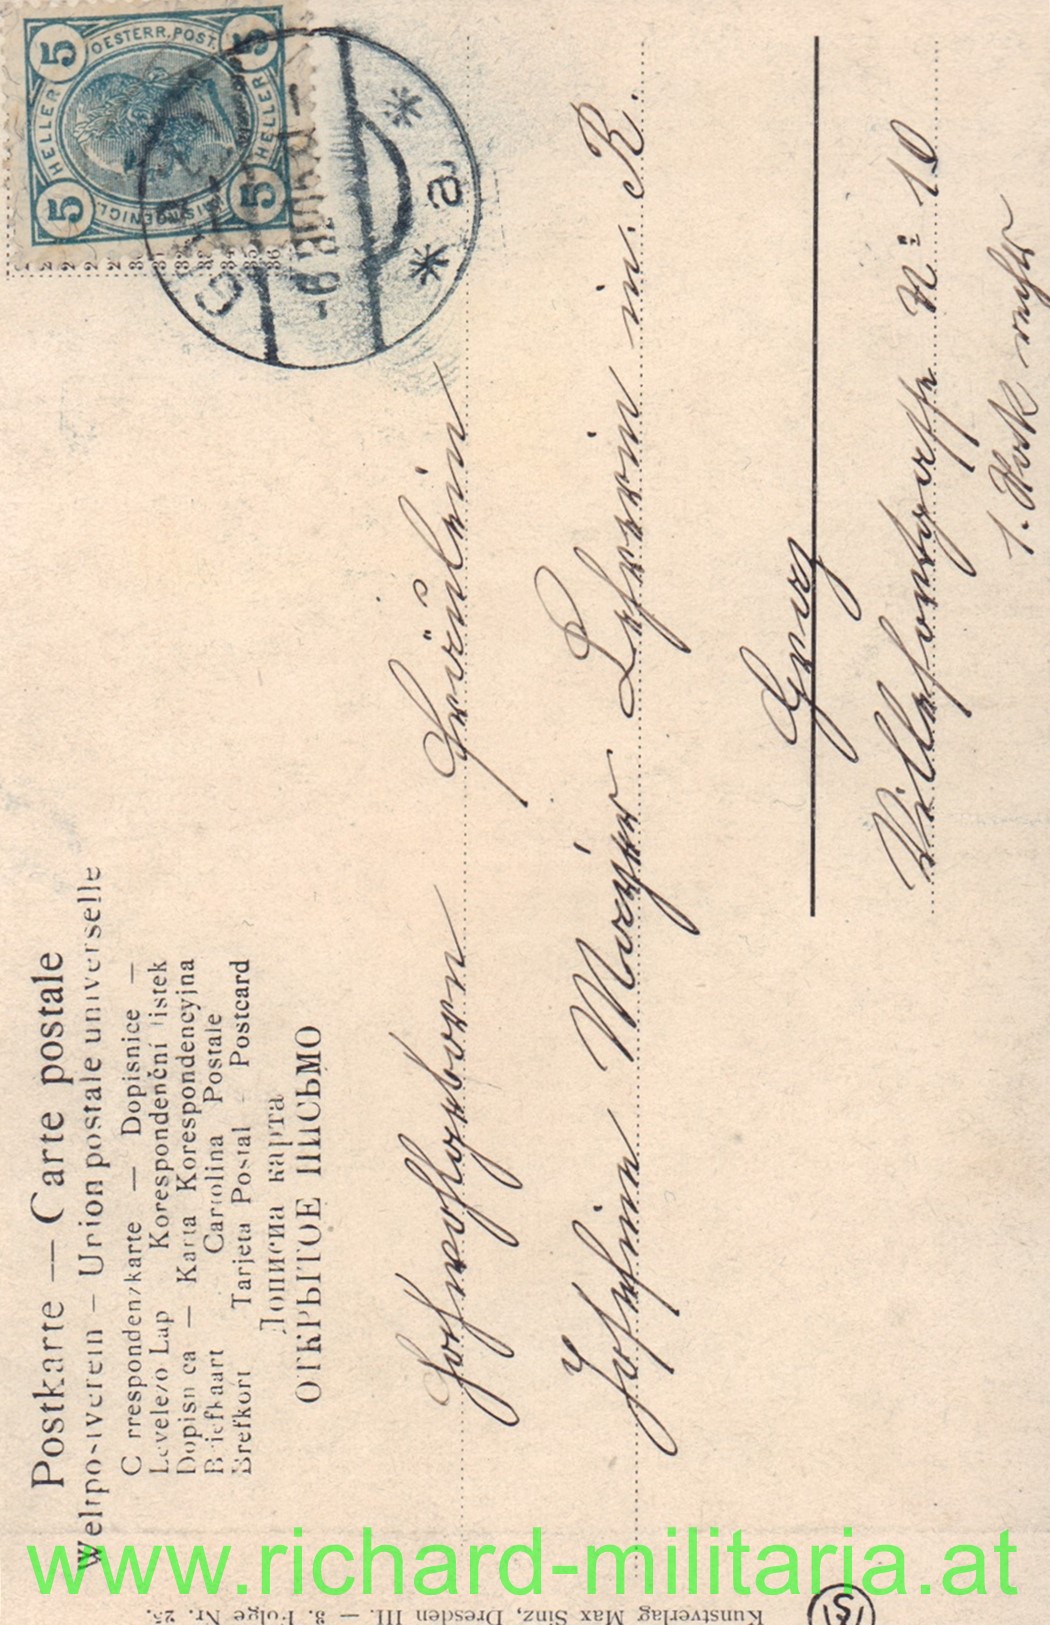 Postkarte — Carte postale
Weltpostverein – Union postale universelle
Correspondenzkarte — Dopisnice —
Levelező Lap Korespondenční lístek
Dopisnica — Karta Korespondencyjna
Briefkaart Cartolina Postale
Brefkort Tarjeta Postal – Postcard
Дописна карта
ОТКРЫТОЕ ПИСЬМО
OESTERR. POST.
5 HELLER 5
5 HELLER 5
* a *
Hochwohlgeboren Fräulein
Josefine Mayer Lehrerin i. R.
Graz
Villefortgasse No 10
1. Stock rechts
Kunstverlag Max Sinz, Dresden III. — 3. Folge Nr. 25.
www.richard-militaria.at